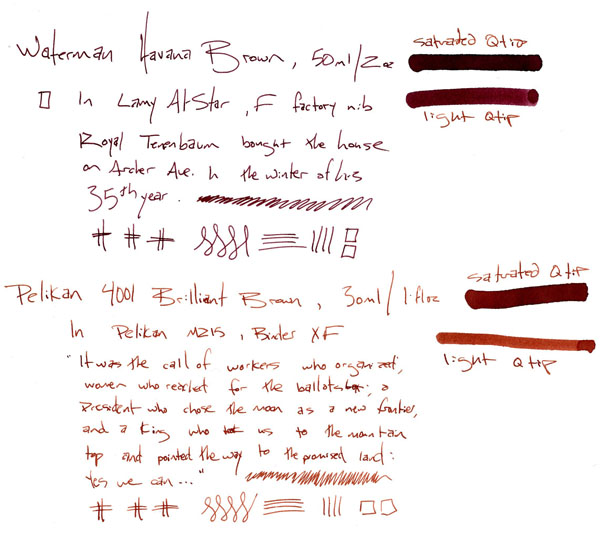 Waterman Havana Brown, 50ml/2oz
saturated Qtip
In Lamy Al-Star, F factory nib
light Qtip
Royal Tenenbaum bought the house
on Archer Ave. In the winter of his
35th year.
Pelikan 4001 Brilliant Brown, 30ml/1floz
saturated Qtip
In Pelikan M215, Binder XF
light Qtip
"It was the call of workers who organized;
women who reached for the ballots; a
President who chose the moon as a new frontier;
and a King who us to the mountain
top and pointed the way to the promised land:
Yes we can..."